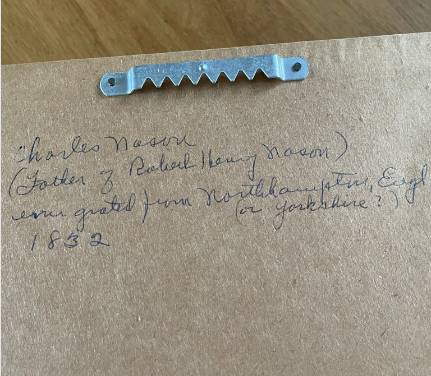 Charles Nason
(Father of Robert Henry Nason)
emmigrated from Northhampton, Engl
(or Yorkshire?)
1832